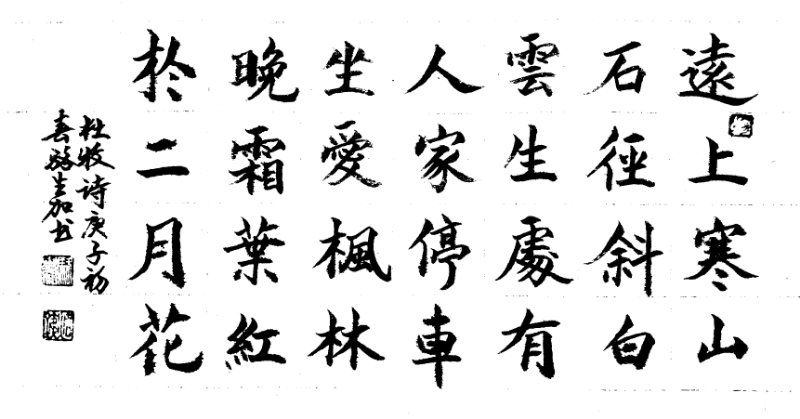 遠上寒山
石徑斜白
雲生處有
人家停車
坐愛楓林
晚霜葉紅
於二月花
杜牧诗庚子初
春生加书